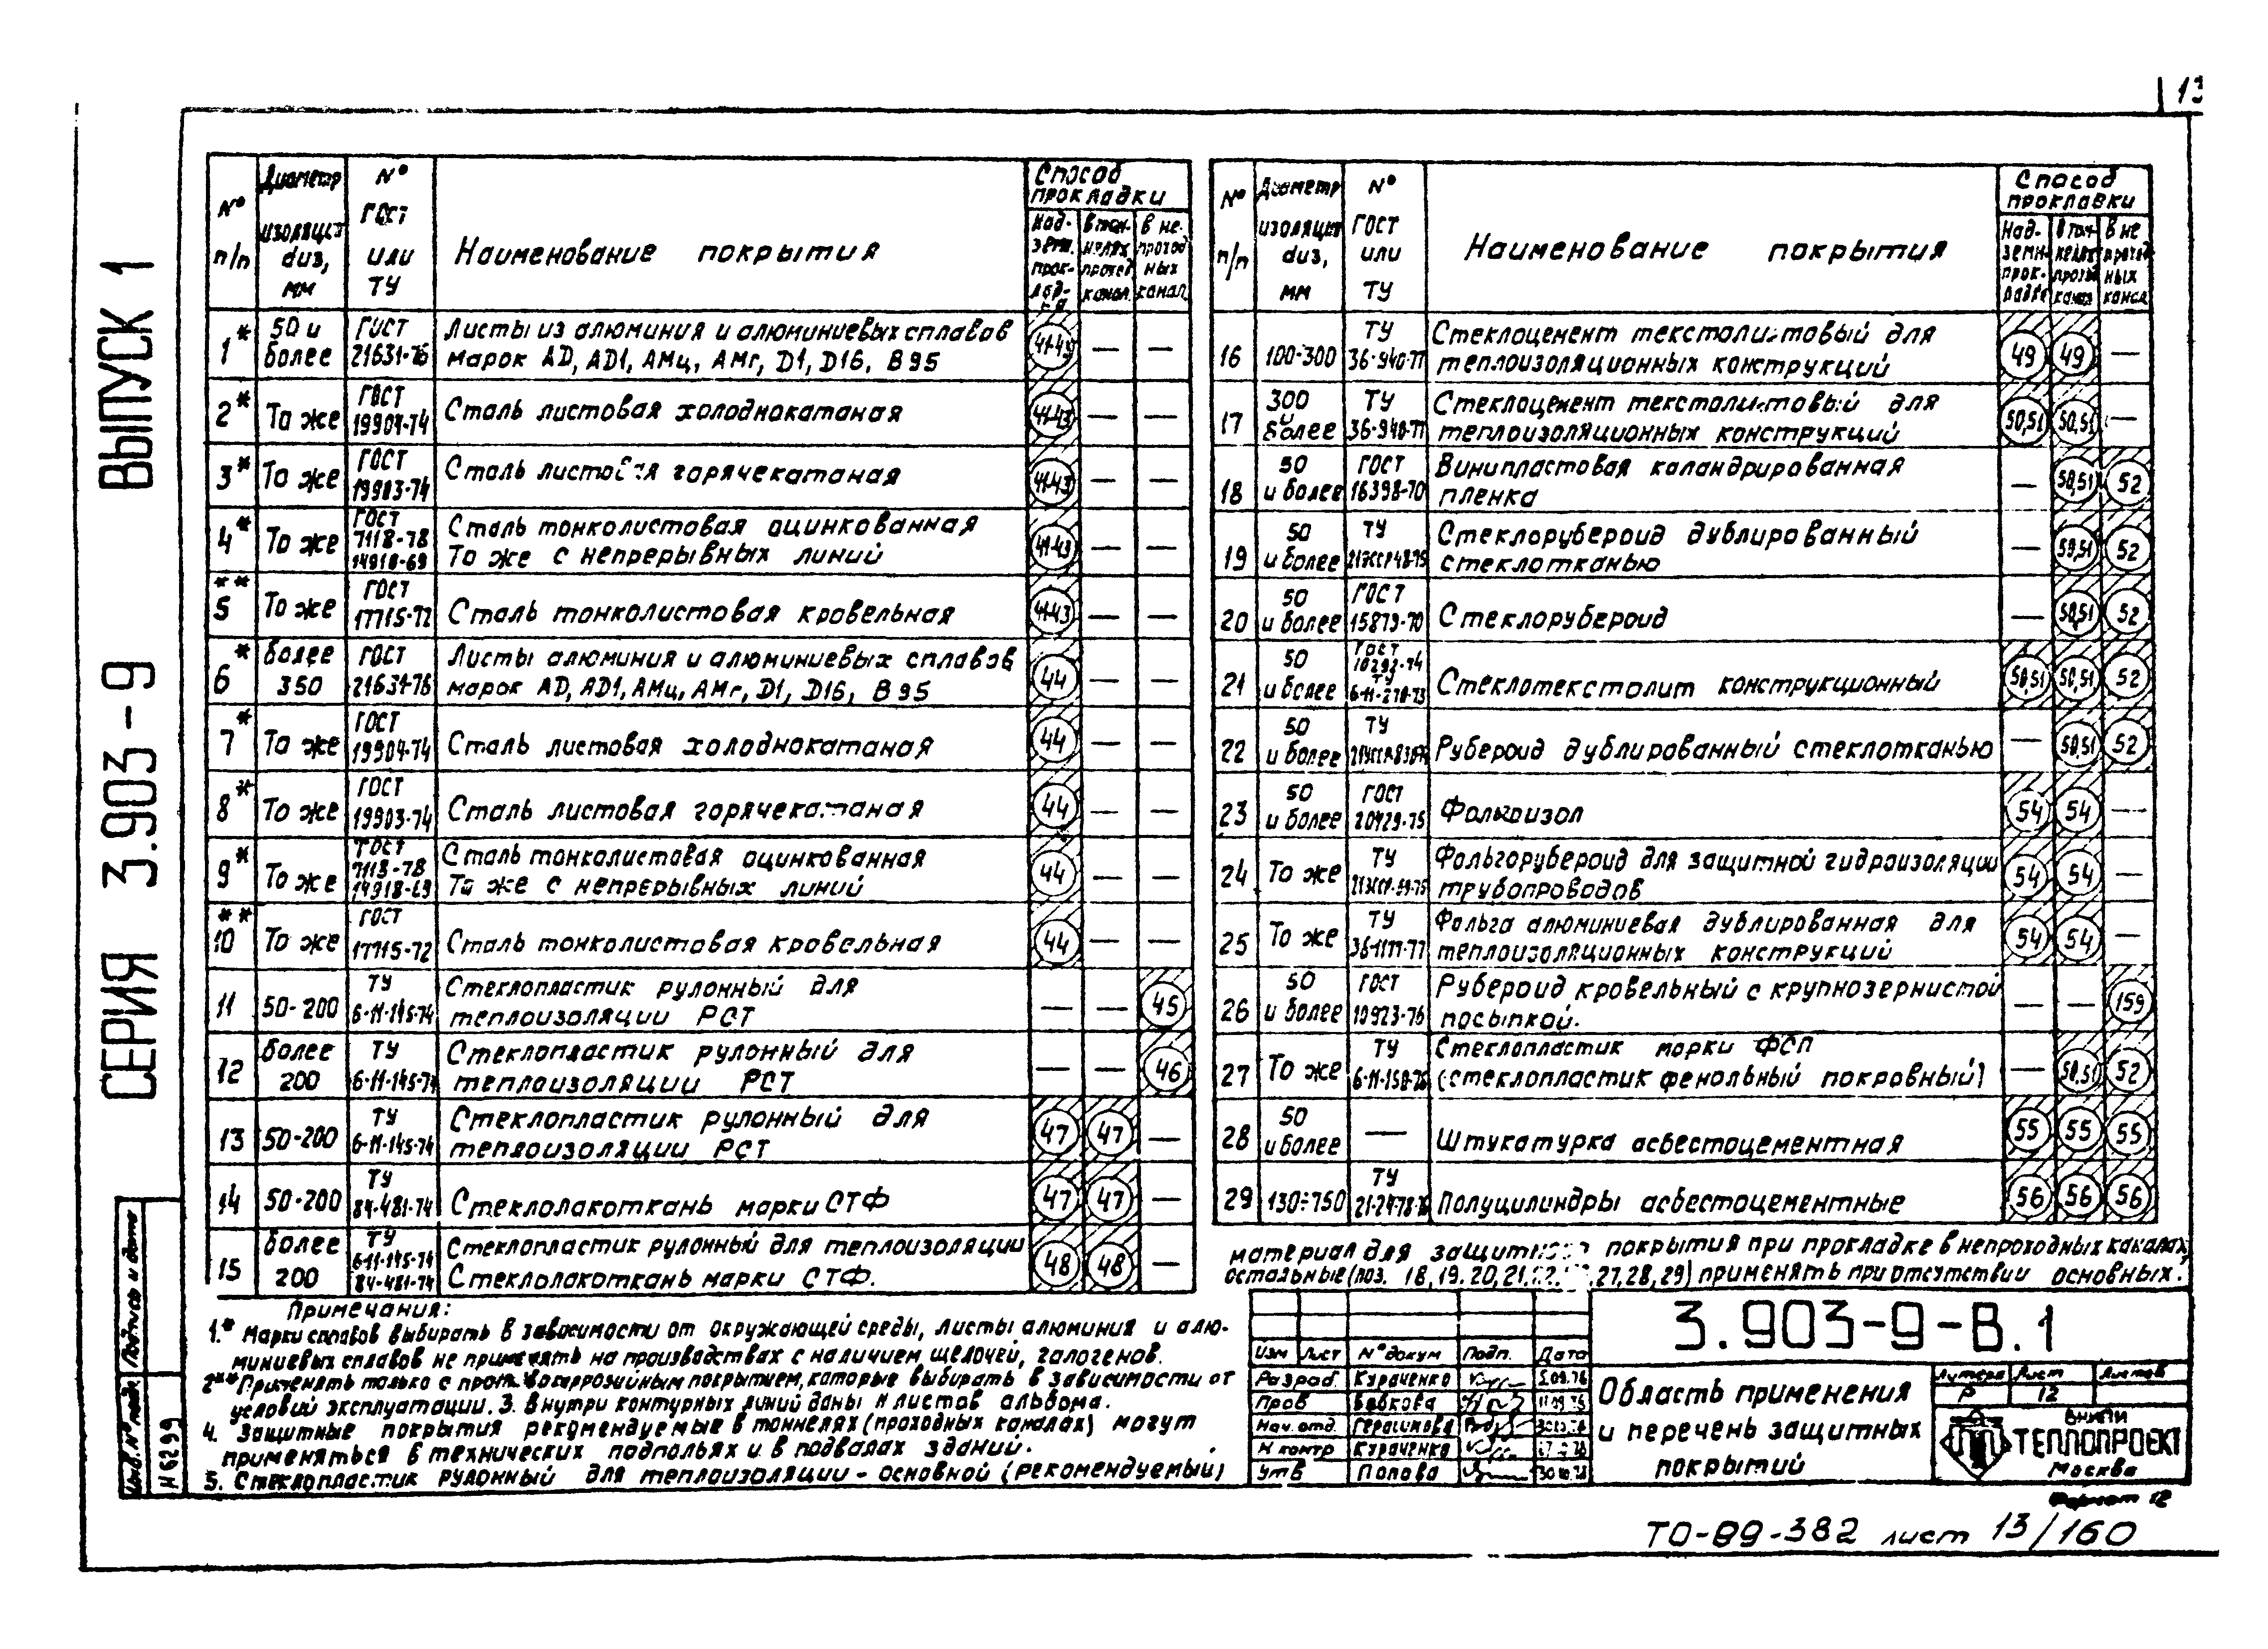 13
СЕРИЯ 3.903-9 ВЫПУСК 1
№ п/п Диаметр изоляции diз, мм № ГОСТ или ТУ Наименование покрытия Способ прокладки
Надземн. прокладка в тоннелях проход. канал. в непроходных канал.
1* 50 и более ГОСТ 21631-76 Листы из алюминия и алюминиевых сплавов
марок АD, АD1, АМц, АМг, D1, D16, В95 — —
2* То же ГОСТ 19904-74 Сталь листовая холоднокатаная 41-43 — —
3* То же ГОСТ 19903-74 Сталь листовая горячекатаная 41-43 — —
4* То же ГОСТ 7118-78 14918-69 Сталь тонколистовая оцинкованная
То же с непрерывных линий 41-43 — —
5** То же ГОСТ 17715-72 Сталь тонколистовая кровельная 41-43 — —
6* более 350 ГОСТ 21631-76 Листы алюминия и алюминиевых сплавов
марок АD, АD1, АМц, АМг, D1, D16, В95 44 — —
7* То же ГОСТ 19904-74 Сталь листовая холоднокатаная 44 — —
8* То же ГОСТ 19903-74 Сталь листовая горячекатаная 44 — —
9* То же ГОСТ 7118-78 14918-69 Сталь тонколистовая оцинкованная
То же с непрерывных линий 44 — —
10** То же ГОСТ 17715-72 Сталь тонколистовая кровельная 44 — —
11 50-200 ТУ 6-11-145-74 Стеклопластик рулонный для
теплоизоляции РСТ — — 45
12 более 200 ТУ 6-11-145-74 Стеклопластик рулонный для
теплоизоляции РСТ — — 46
13 50-200 ТУ 6-11-145-74 Стеклопластик рулонный для
теплоизоляции РСТ 47 47 —
14 50-200 ТУ 84-481-74 Стеклолакоткань марки СТФ 47 47 —
15 более 200 ТУ 6-11-145-74 84-481-74 Стеклопластик рулонный для теплоизоляции
Стеклолакоткань марки СТФ. 48 48 —
№ п/п Диаметр изоляции diз, мм № ГОСТ или ТУ Наименование покрытия Способ прокладки
Надземн. прокладке в тоннелях проход. канал в непроходных канал
16 100-300 ТУ 36-940-77 Стеклоцемент текстолитовый для
теплоизоляционных конструкций 49 49 —
17 300 и более ТУ 36-940-77 Стеклоцемент текстолитовый для
теплоизоляционных конструкций 50,51 50,51 —
18 50 и более ГОСТ 16398-70 Винипластовая каландрированная
пленка — 50,51 52
19 50 и более ТУ Стеклорубероид дублированный
стеклотканью — 50,51 52
20 50 и более ГОСТ 15879-70 Стеклорубероид — 50,51 52
21 50 и более ГОСТ 10292-74 ТУ 6-11-270-73 Стеклотекстолит конструкционный 50,51 50,51 52
22 50 и более ТУ Рубероид дублированный стеклотканью — 50,51 52
23 50 и более ГОСТ 20429-75 Фольгоизол 54 54 —
24 То же ТУ Фольгорубероид для защитной гидроизоляции
трубопроводов 54 54 —
25 То же ТУ 36-1177-77 Фольга алюминиевая дублированная для
теплоизоляционных конструкций 54 54 —
26 50 и более ГОСТ 10923-76 Рубероид кровельный с крупнозернистой
посыпкой. — — 159
27 То же ТУ Стеклопластик марки ФСП
(стеклопластик фенольный покровный) — 50,51 52
28 50 и более — Штукатурка асбестоцементная 55 55 55
29 130÷750 ТУ Полуцилиндры асбестоцементные 56 56 56
Примечания:
1.* Марки сплавов выбирать в зависимости от окружающей среды, листы алюминия и алю-
миниевых сплавов не применять на производствах с наличием щелочей, галогенов.
2** Применять только с противокоррозийным покрытием, которые выбирать в зависимости от
условий эксплуатации. 3. Внутри контурных линий даны № листов альбома.
4. Защитные покрытия рекомендуемые в тоннелях (проходных каналах) могут
применяться в технических подпольях и в подвалах зданий.
5. Стеклопластик рулонный для теплоизоляции - основной (рекомендуемый)
материал для защитного покрытия при прокладке в непроходных каналах,
остальные (поз. 18, 19, 20, 21, 27, 28, 29) применять при отсутствии основных.
Изм Лист № докум Подп. Дата
Разраб. Кураченко
Пров Бабкова
Нач. отд. Герасимова
Н контр Кураченко
Утв Попова
3.903-9-В.1
Область применения
и перечень защитных
покрытий
Литера Лист Листов
Р 12
ВНИПИ
ТЕПЛОПРОЕКТ
Москва
Подпись и дата
Инв. № подл.
N 6299
Формат 12
ТО-89-382 лист 13/160